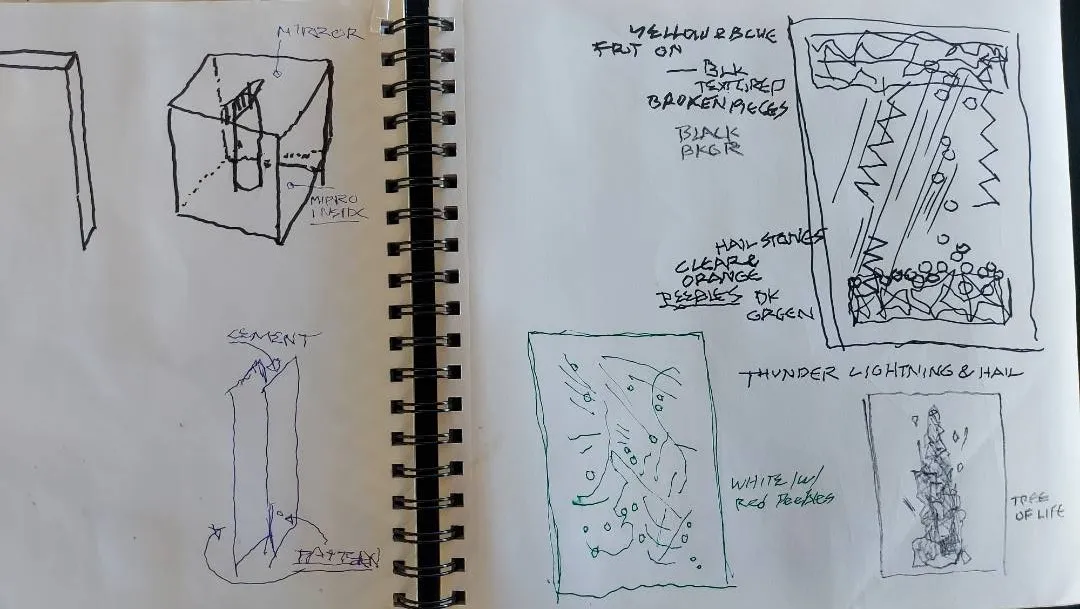 MIRROR
MIRRO
INSIDE
CEMENT
PATTERN
YELLOW & BLUE
FRIT ON
— BLK
TEXTURED
BROKEN PIECES
BLACK
BKGR
HAIL STONES
CLEAR &
ORANGE
PEEBLES DK
GREEN
THUNDER LIGHTNING & HAIL
WHITE /W/
RED PEEBLES
TREE
OF LIFE